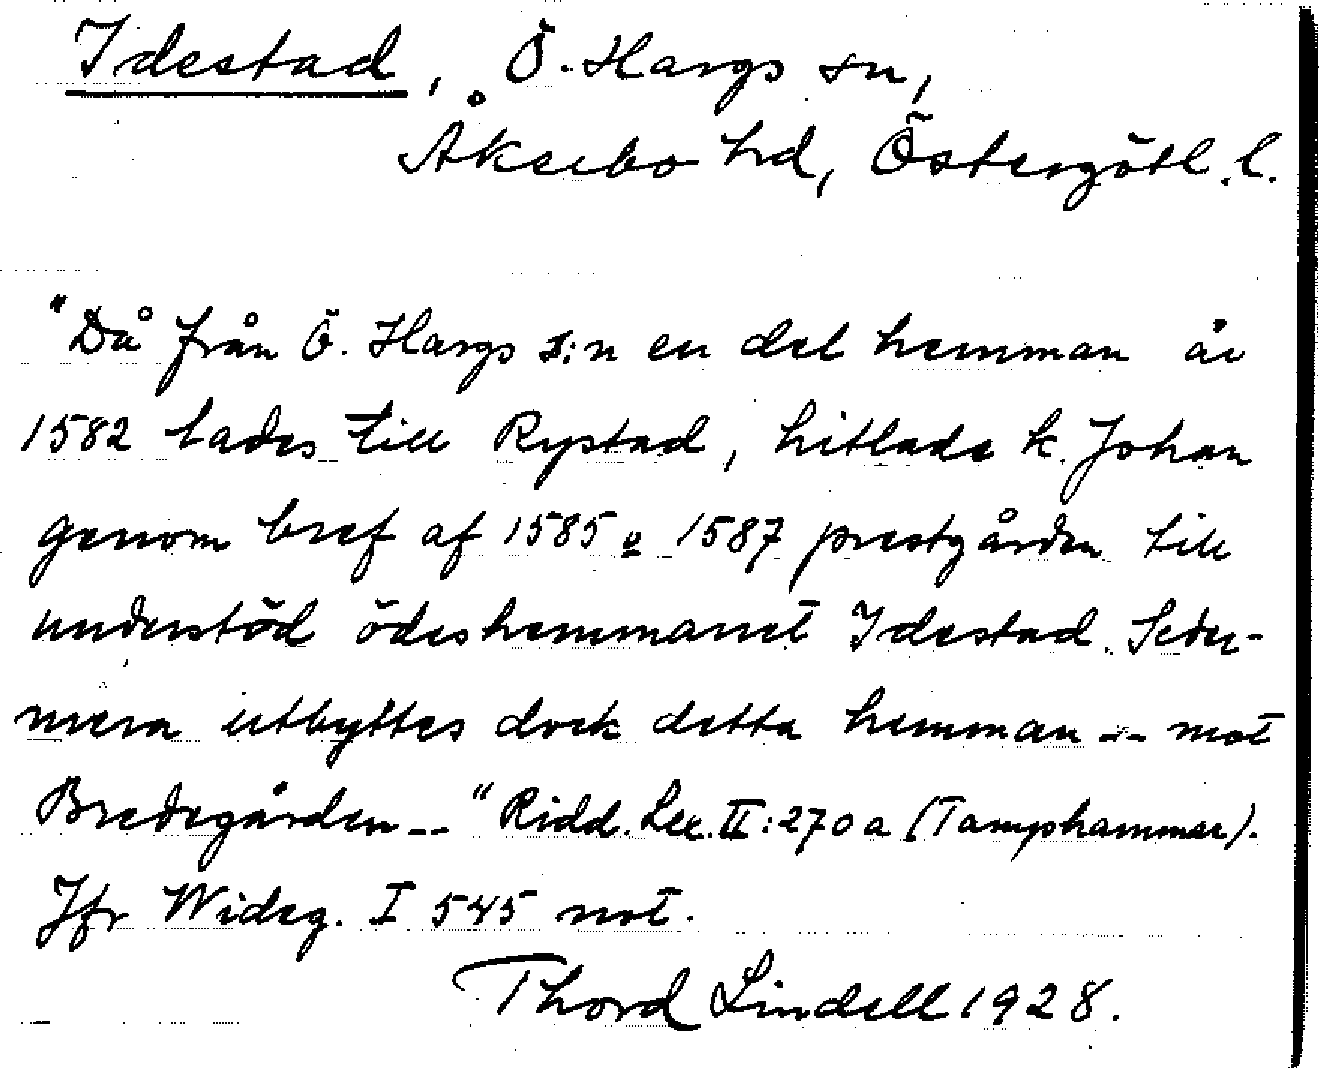 Idestad, Ö. Hargs sn,
Åkerbo hd, Östergötl. l.
"Då från Ö. Hargs s:n en del hemman år
1582 lades till Rystad, hitlade k. Johan
genom bref af 1585 o 1587 prestgården till
understöd ödeshemmanet Idestad. Seder-
mera utbyttes dock detta hemman -- mot
Bredegården -- " Ridd. Lex. II: 270 a (Tamphammar).
Jfr Wideg. I 545 not.
Thord Lindell 1928.